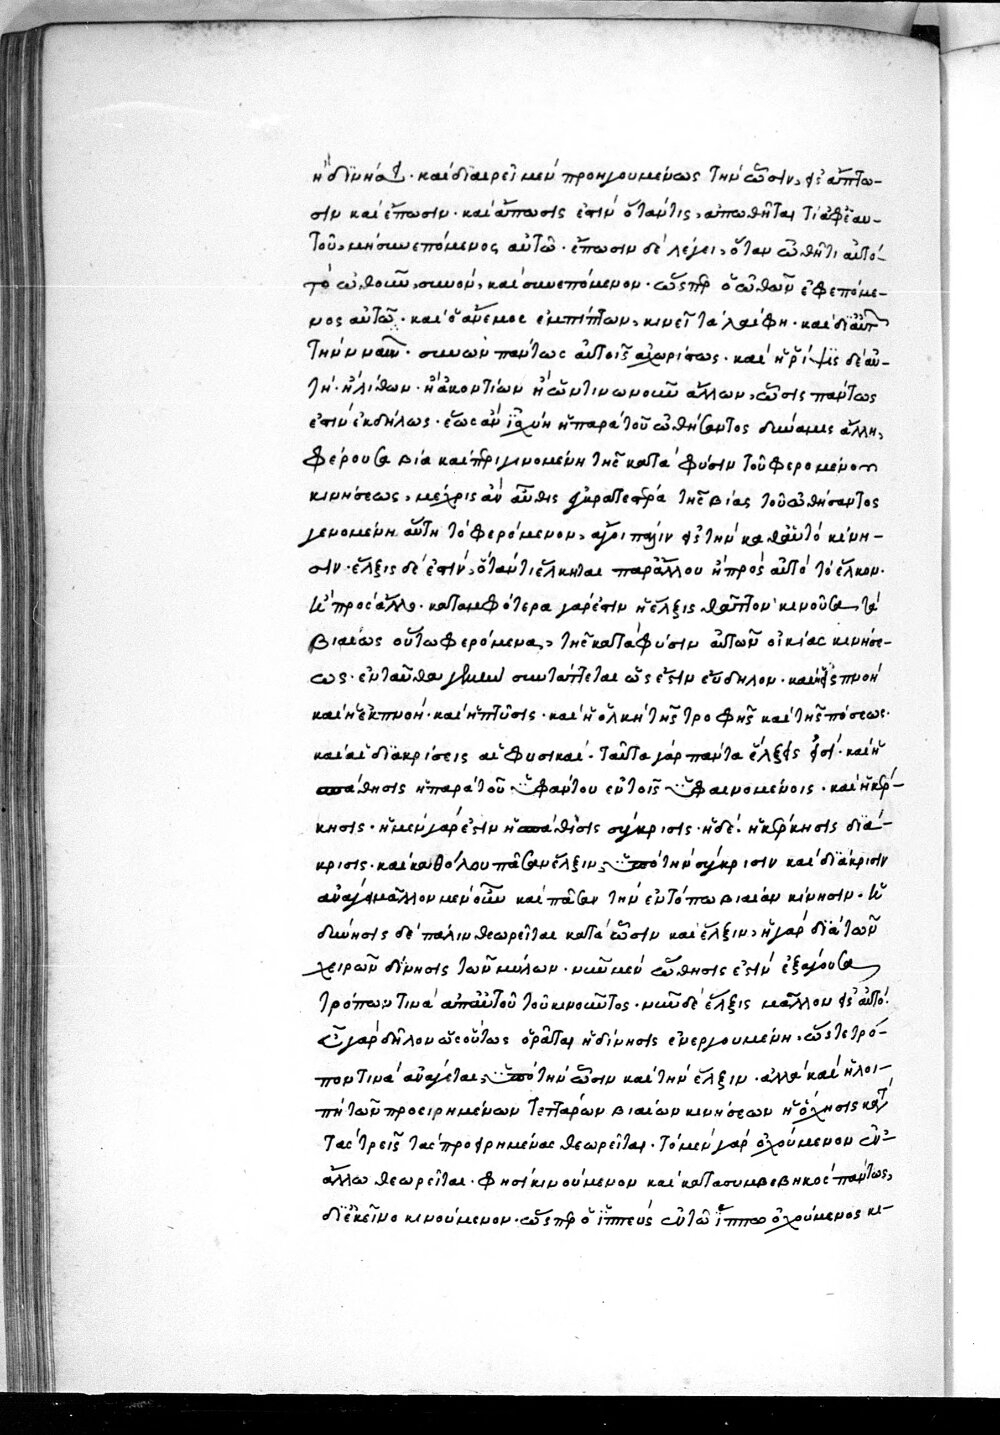 ἢ δίνησι. καὶ διαιρεῖ μὲν προηγουμένως τὴν ὦσιν, εἰς ἄπω-
σιν καὶ ἔπωσιν. καὶ ἄπωσις ἐστὶν ὅταν τις, ἀπωθῆται τι ἀφ' ἑαυ-
τοῦ, μὴ συνεπόμενος αὐτῶ. ἔπωσιν δὲ λέγει, ὅταν ὠθῆ τι αὐτό
τὸ ὠθοῦν, συνὸν, καὶ συνεπόμενον. ὥσπερ ὁ ὠθῶν ἐφεπόμε-
νος αὐτῶ. καὶ ὁ ἄνεμος ἐμπίπτων, κινεῖ τὰ λαίφη. καὶ δι' αὐτῶν
τὴν ναῦν. συνὼν πάντως αὐτοῖς ἀχωρίστως. καὶ ἡ ῥίψις δὲ αὐ-
τὴ. ἢ λίθων. ἢ ἀκοντίων ἢ ὧντινωνοῦν ἄλλων, ὦσις πάντως
ἐστὶν ἐκδήλως. ἕως ἂν ἰσχύη ἡ παρὰ τοῦ ὠθήσαντος δύναμις ἄλλη,
φέρουσα βία καὶ περιγινομένη τῆς κατὰ φύσιν τοῦ φερομένου
κινήσεως, μέχρις ἂν αὖθις ἐγκρατεστέρα τῆς βίας τοῦ ὠθήσαντος
γενομένη αὕτη τὸ φερόμενον, ἄγοι πάλιν εἰς τὴν καθ' αὑτὸ κίνη-
σιν. ἕλξις δὲ ἐστὶν, ὅταν τι ἕλκηται παρ' ἄλλου ἢ πρὸς αὐτὸ τὸ ἕλκον.
ἢ πρὸς ἄλλο. κατ' ἀμφότερα γάρ ἐστιν ἡ ἕλξις θᾶττον κινοῦσα τὰ
βιαίως οὕτω φερόμενα, τῆς κατὰ φύσιν αὐτῶν οἰκίας κινήσε-
ως. ἐνταῦθα συντάττεται ὥς ἐστιν εὔδηλον. καὶ ἡ εἰσπνοὴ
καὶ ἡ ἐκπνοή. καὶ ἡ πτύσις. καὶ ἡ ὁλκὴ τῆς τροφῆς καὶ τῆς πόσεως.
καὶ αἱ διακρίσεις αἱ φυσικαί. ταῦτα γὰρ πάντα ἕλξεις εἰσί. καὶ ἡ
σπάθησις ἡ παρὰ τοῦ ὑφάντου ἐν τοῖς ὑφαινομένοις. καὶ ἡ κέρ-
κησις. ἡ μὲν γάρ ἐστιν ἡ σπάθησις σύγκρισις. ἡ δὲ. ἡ κέρκησις διά-
κρισις. καὶ καθόλου πᾶσαν ἕλξιν, ὑπὸ τὴν σύγκρισιν καὶ διάκρισιν
ἀνάγει μᾶλλον μὲν οὖν καὶ πᾶσαν τὴν ἐν τόπω βιαίαν κίνησιν. ἡ
δίνησις δὲ πάλιν θεωρεῖται κατὰ ὦσιν καὶ ἕλξιν, ἡ γὰρ διὰ τῶν
χειρῶν δίνησις τῶν μύλων. νῦν μὲν ὤθησις ἐστὶν ἐξάγουσα
τρόπων τινὰ ἀπ' αὐτοῦ τοῦ κινοῦντος. νῦν δὲ ἕλξις μᾶλλον εἰς αὐτό.
εὖ γὰρ δῆλον ὡς οὕτως ὁρᾶται ἡ δίνησις ἐνεργουμένη, ὥστε τρό-
πον τινὰ ἀνάγεται, ὑπὸ τὴν ὦσιν καὶ τὴν ἕλξιν. ἀλλὰ καὶ ἡ λοι-
πὴ τῶν προειρημένων τεττάρων βιαίων κινήσεων ἡ ὄχησις κατὰ
τὰς τρεῖς τὰς προειρημένας θεωρεῖται. τὸ μὲν γὰρ ὀχούμενον ἐν
ἄλλω θεωρεῖται. φησὶ κινούμενον καὶ κατὰ συμβεβηκὸς πάντως,
δι' ἐκεῖνο κινούμενον. ὥσπερ ὁ ἱππεὺς ἐν τῶ ἵππω ὀχούμενος κι-